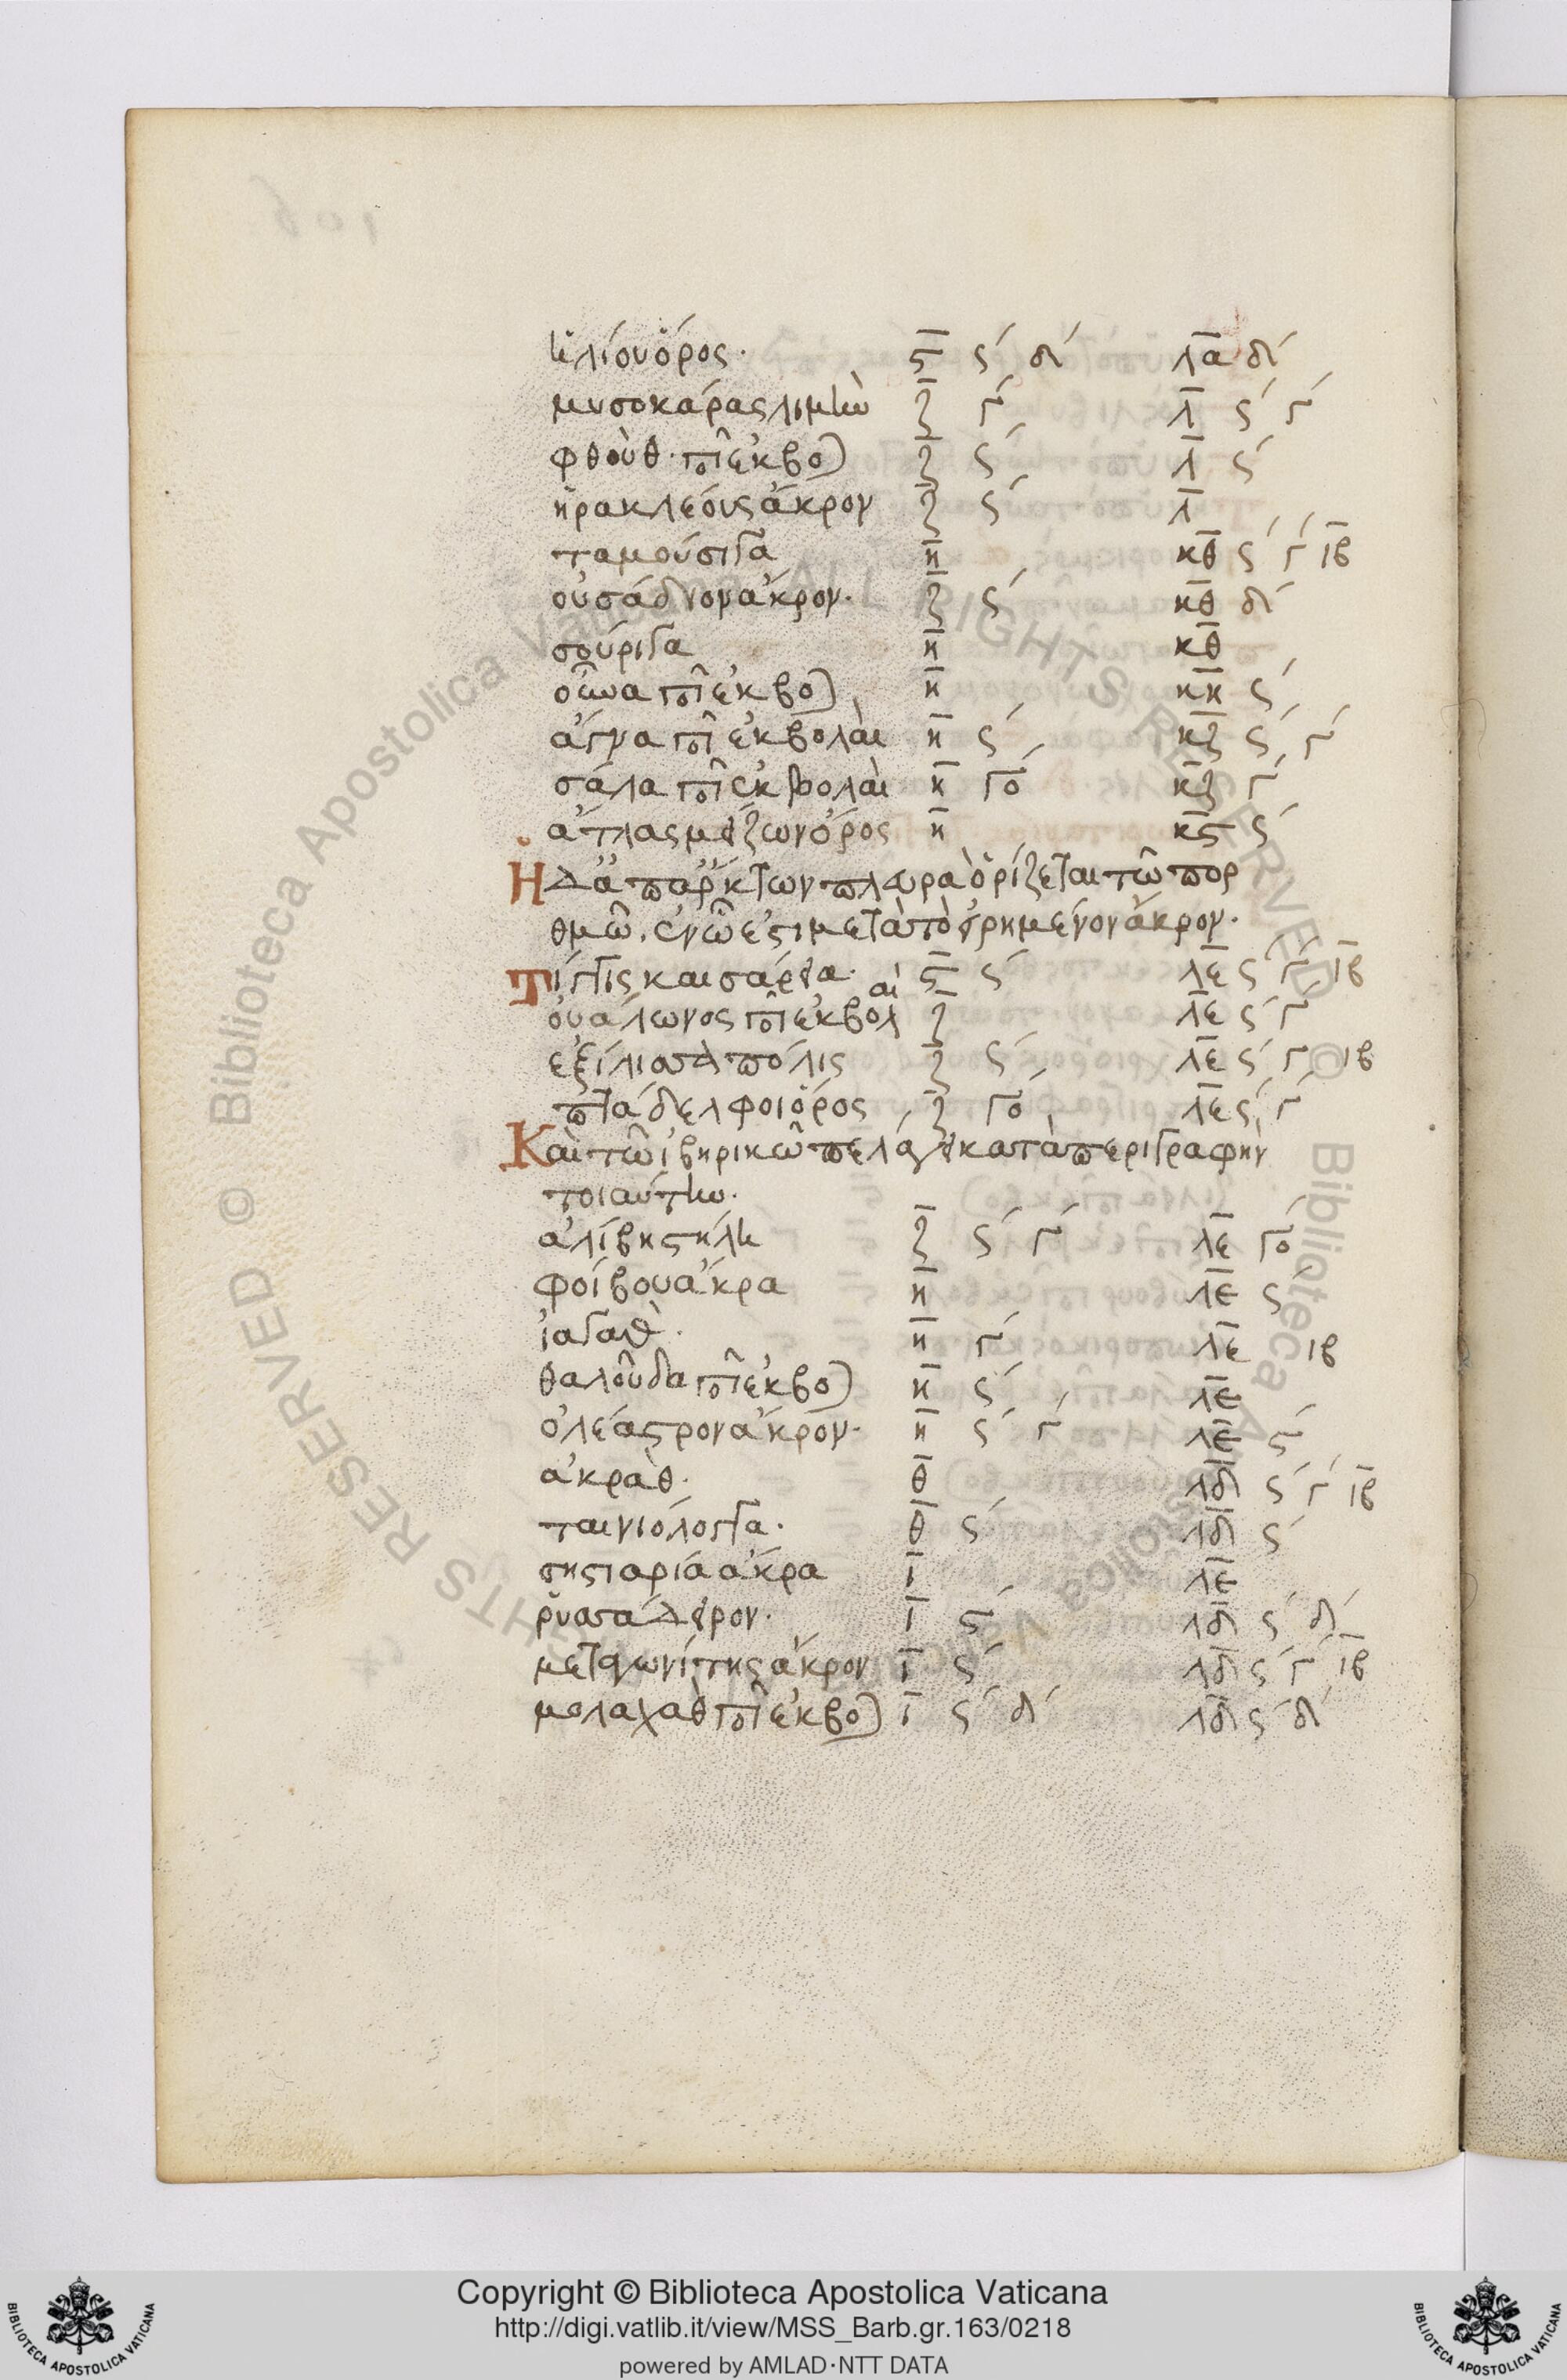 ἡλίου ὄρος· ϛ̅ ϛ´ δ´ λα̅ δ´
μυσοκάρας λιμὴν ζ̅ γ´ λ̅ ϛ´ γ´
φθοὺθ· πο͂ἐκβο) ζ̅ ϛ´ λ̅ ϛ´
ἡρακλέους ἄκρον ζ̅ ϛ´ λ̅
ταμούσιγα η̅ κθ̅ ϛ´ γ´ ιβ̅
οὐσάδιον ἄκρον· ζ̅ ϛ´ κθ̅ δ´
σούριγα η̅ κθ̅
οὔνα πο͂ἐκβο) η̅ κη̅ ϛ´
ἄγνα πο͂ ἐκβολαὶ η̅ ϛ´ κζ̅ ϛ´ γ´
σάλα πο͂ ἐκβολαὶ η̅ γο´ κζ̅ γ´
ἄτλας μείζων ὄρος η̅ κϛ̅ ϛ´
Ἡ δὲ ἀπ ἄρκτων πλευρὰ ὁρίζεται τῶ πορ
θμῶ. ἐν ὧ ἐϛι μετὰ τὸ εἰρημένον ἄκρον·
Τίγγις καισάρεια· ϛ̅ ϛ´ λε̅ ϛ´ γ´ ιβ̅
οὐάλωνος πο͂ἐκβολαὶ ζ̅ λε̅ ϛ´ γ´
ἐξίλισσα πόλις ζ̅ ϛ´ λε̅ ϛ´ γ´ ιβ
ἑπτάδελφοι ὄρος ζ̅ γο´ λε̅ ϛ´ γ´
Καὶ τῶ ἰβηρικῶ πελάγει κατὰ περιγραφὴν
τοιαύτην.
ἀλίβης ϛήλη ζ̅ ϛ´ γ´ λε̅ γο´
φοίβου ἄκρα η̅ λε̅ ϛ´
ἰαγαθ· η̅ γ´ λε̅ ιβ
θαλοῦδα πο͂ἐκβο) η̅ ϛ´ λε̅
ὀλέαϛρον ἄκρον· η̅ ϛ´ γ´ λε̅ ϛ´
ἀκρὰθ· θ̅ λδ̅ ϛ´ γ´ ιβ̅
ταινιόλογγα· θ̅ ϛ´ λδ̅ ϛ´
σηϛιαρία ἄκρα ι̅ λε̅
ῥυσσάδειρον· ι̅ ϛ´ λδ̅ ϛ´ δ´
μεταγωνίτης ἄκρον ι̅ ϛ´ λδ̅ ϛ´ γ´ ιβ̅
μολαχὰθ πο͂ ἐκβο) ι̅ ϛ´ δ´ λδ̅ ϛ´ δ´
© Biblioteca Apostolica Vaticana ALL RIGHTS RESERVED
Copyright © Biblioteca Apostolica Vaticana
http://digi.vatlib.it/view/MSS_Barb.gr.163/0218
powered by AMLAD·NTT DATA
BIBLIOTECA APOSTOLICA VATICANA
BIBLIOTECA APOSTOLICA VATICANA